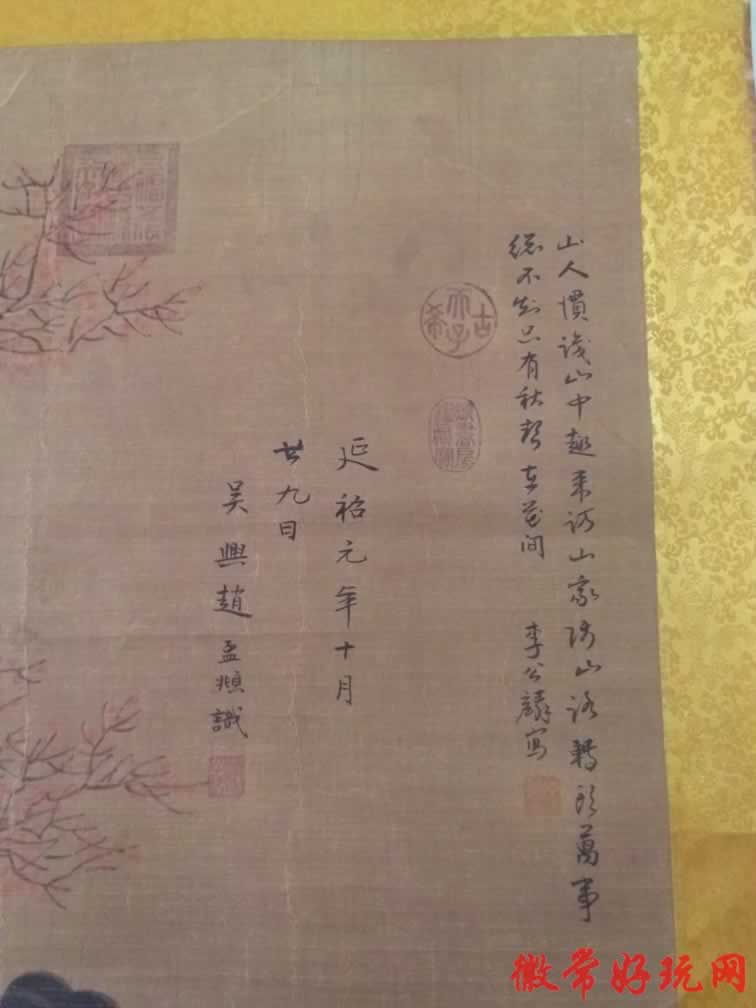 山人慣識山中趣来訪山家访山路轉頭萬事
總不知只有秋聲在花間
李公麟寫
古希天子
延祐元年十月
廿九日
吳興趙孟頫識
徽常好玩网